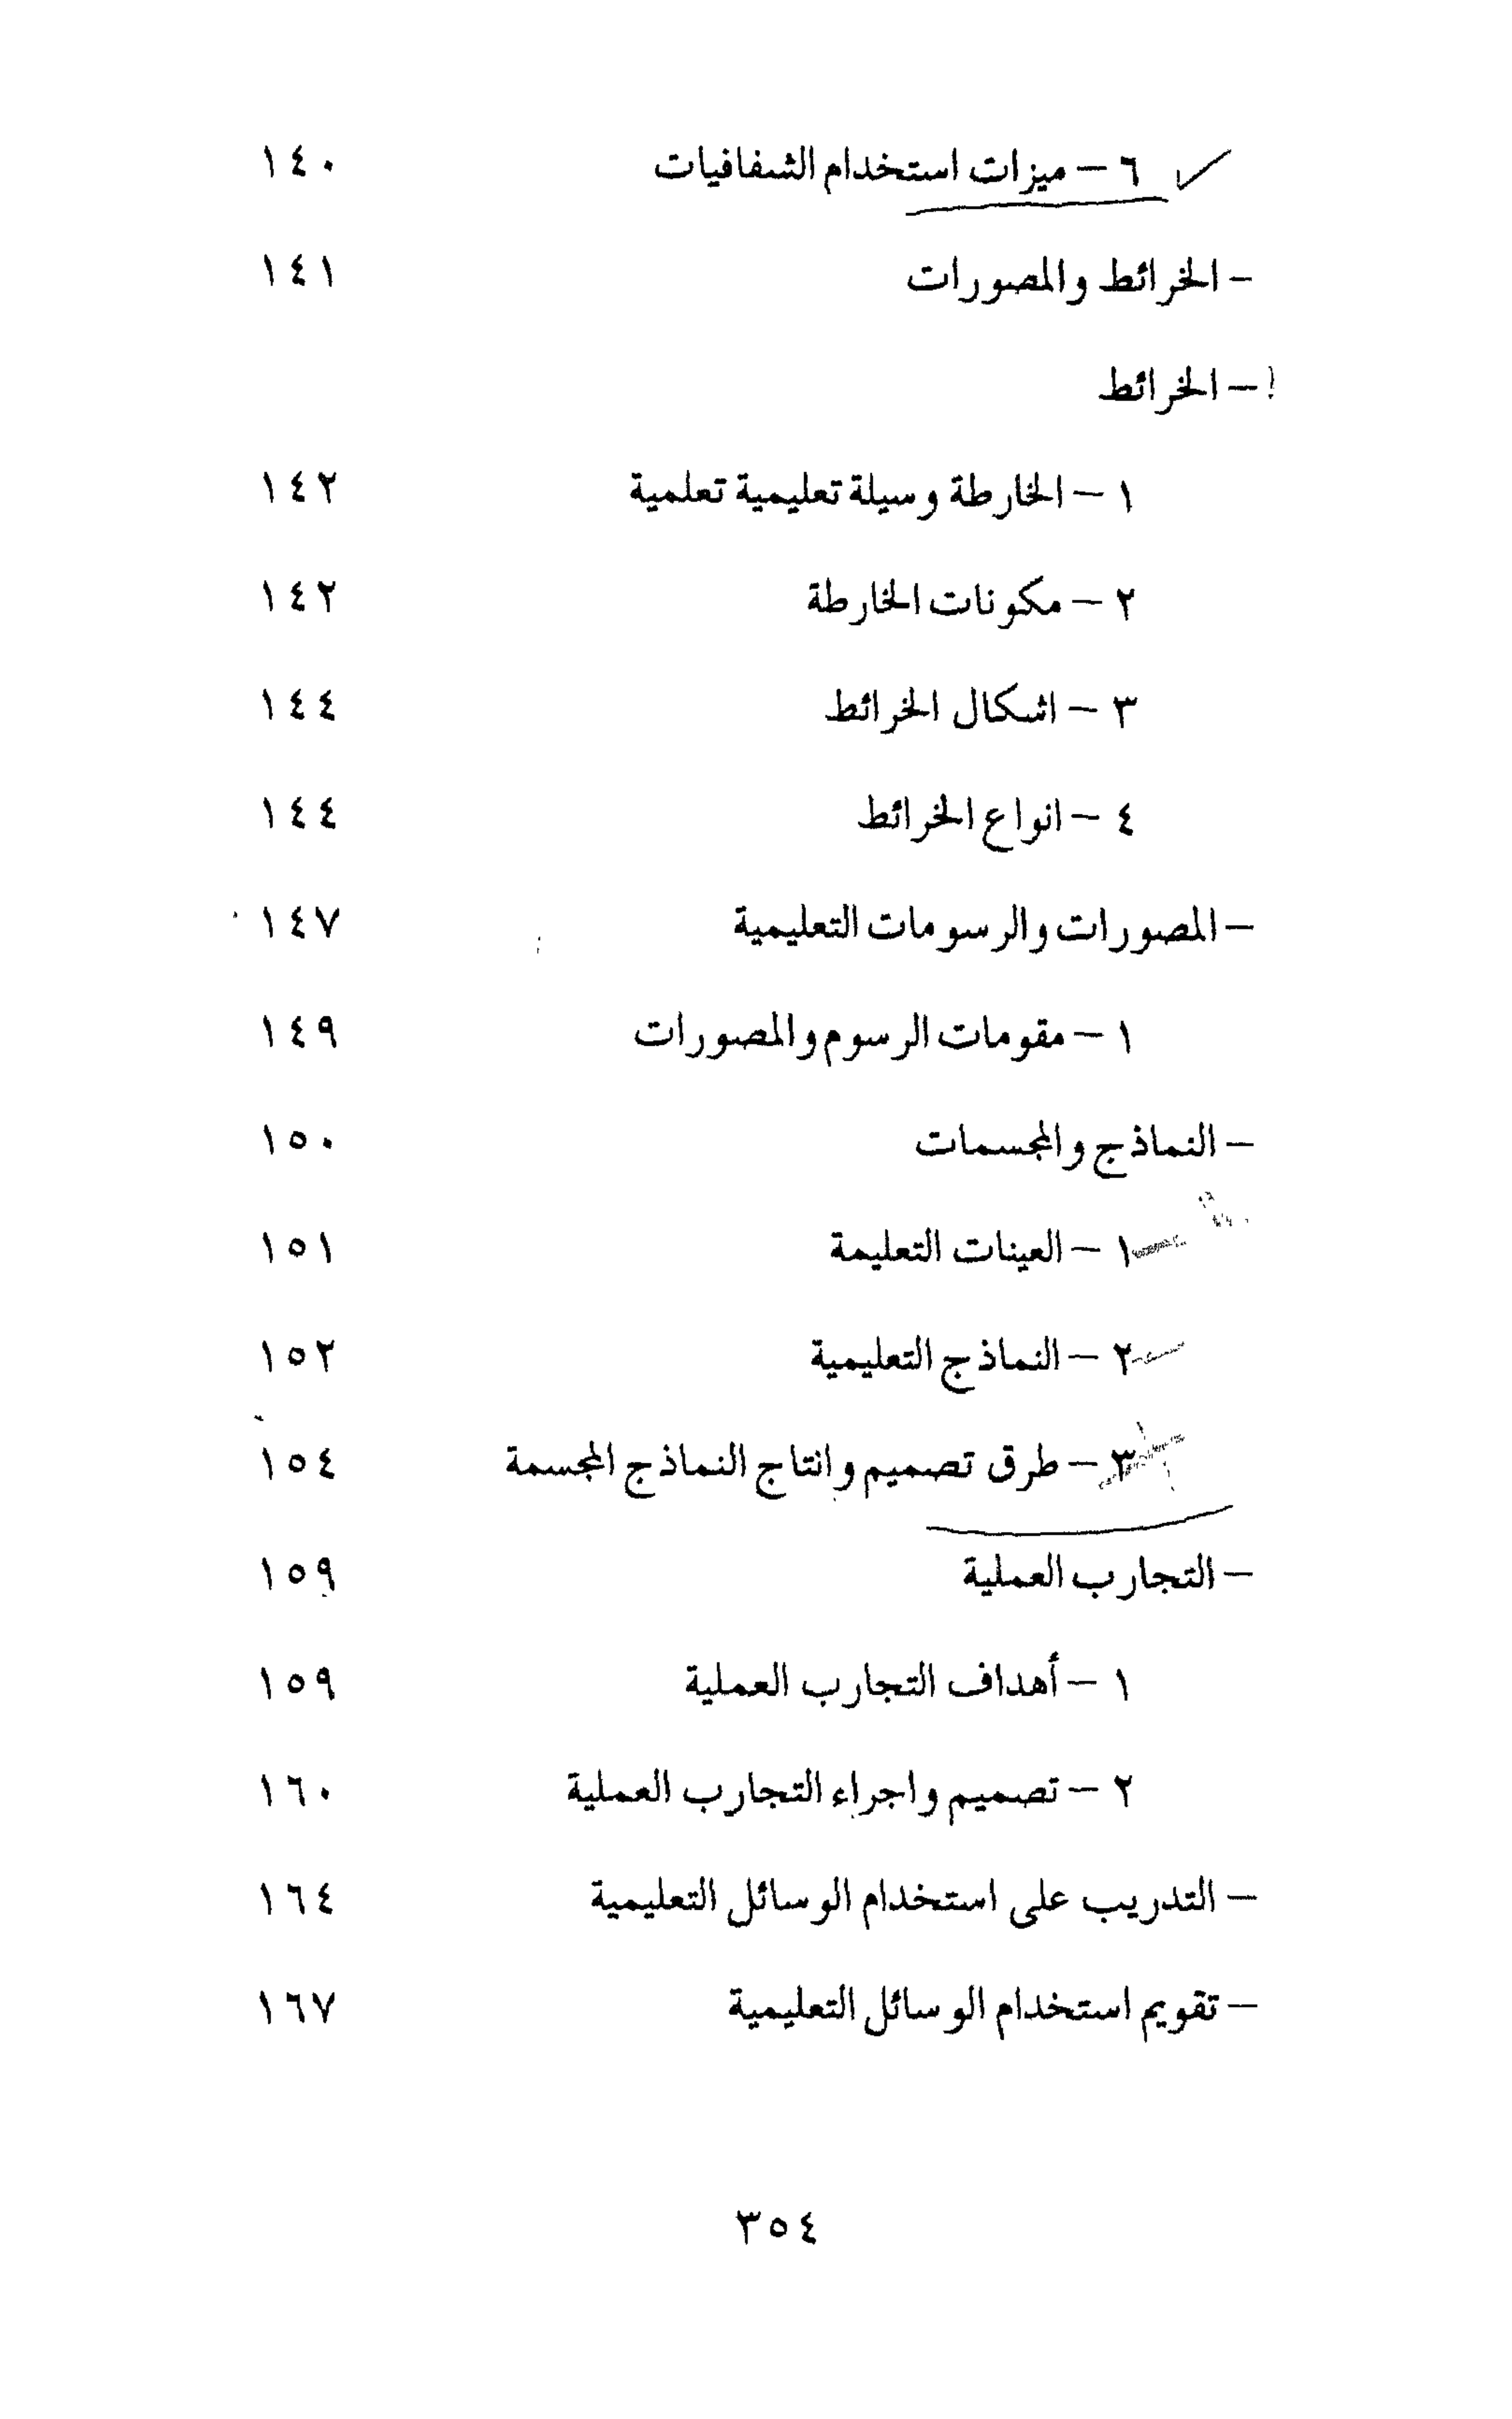 ٦ – ميزات استخدام الشفافيات ١٤٠
– الخرائط والمصورات ١٤١
– الخرائط
١ – الخارطة وسيلة تعليمية تعلمية ١٤٢
٢ – مكونات الخارطة ١٤٢
٣ – اشكال الخرائط ١٤٤
٤ – انواع الخرائط ١٤٤
– المصورات والرسومات التعليمية ١٤٧
١ – مقومات الرسوم والمصورات ١٤٩
– النماذج والمجسمات ١٥٠
١ – العينات التعليمة ١٥١
٢ – النماذج التعليمية ١٥٢
٣ – طرق تصميم وانتاج النماذج المجسمة ١٥٤
– التجارب العملية ١٥٩
١ – أهداف التجارب العملية ١٥٩
٢ – تصميم واجراء التجارب العملية ١٦٠
– التدريب على استخدام الوسائل التعليمية ١٦٤
– تقويم استخدام الوسائل التعليمية ١٦٧
٣٥٤